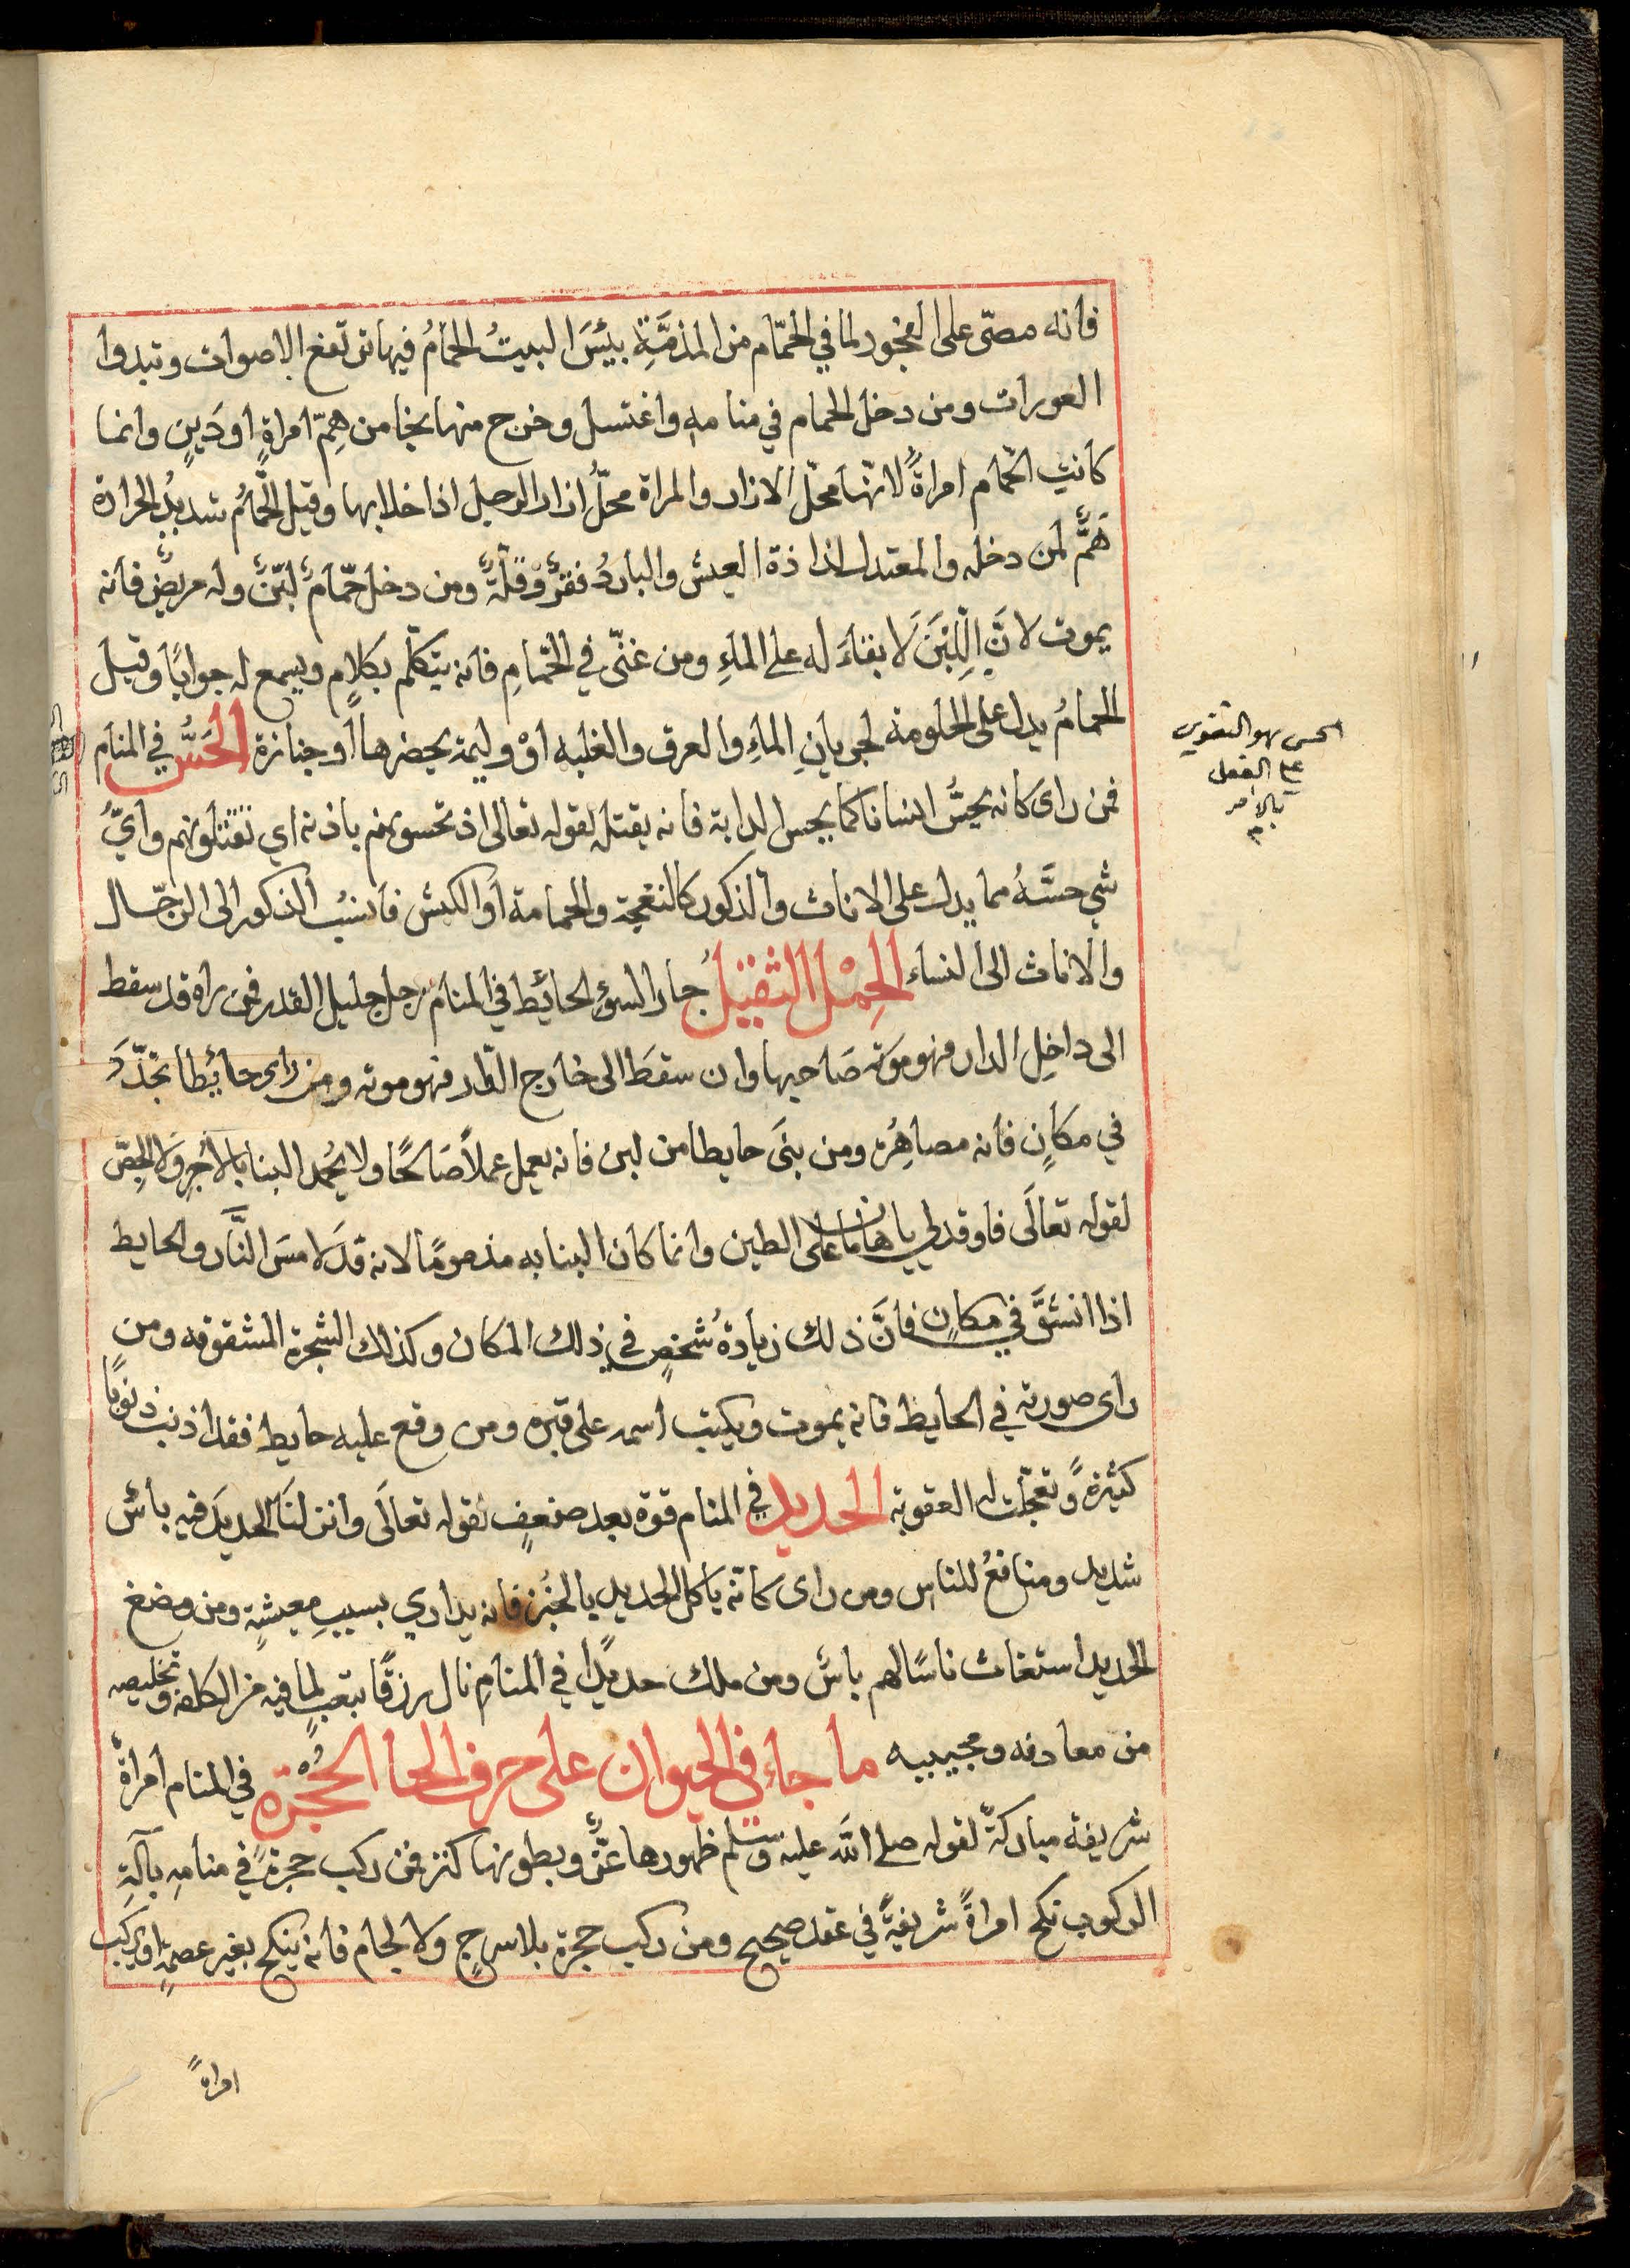 فانه مصّى على الفجور لما في الحمّام من المذمَّةِ بيئسَ البيتُ الحمامُ فيها ترتفع الاصوات وتبدوا
العورات ومن دخل الحمام في منامه واغتسل وخرج منها نجا من هِمّ امراةٍ او دَينٍ وانما
كانتِ الحمام امراةً لانّها محلّ الازار والمراة محلُّ ازار الرجل اذا خلا بها وقيل الحمّامُ شديدُ الحرارة
هَمٌّ لمن دخله والمعتدل لذاذة العيش والباردُ فقرٌ وقلّةٌ ومن دخل حمّامَ لبَنٍ وله مريضٌ فانه
يموت لانَّ اللبَنَ لا بقاءَ له على الماءِ ومن غنّى في الحمّامِ فانه يتكلّم بكلامٍ ويسمع له جوابًا وقيل
الحمامُ يدل على الحلومة لجريانِ الماءِ والعرق والغلبه أوْ وليمة يحضرها أو جنازة الحَسُّ في المنام
فمن راى كانه يحسُّ انسانا كما يحس الدابة فانه يقتله لقوله تعالى اذ تحسونهم باذنه اي تقتلونهم وايُّ
شي حسَّهُ مما يدل على الاناث والذكور كالنعجة والحمامة أو الكبش فانسب الذكور الى الرجّال
والاناث الى النساء الحِمْل الثقيل جار السوء الحائِط في المنام رجل جليل القدر فمن راه قد سقط
الى داخِل الدار فهو مَوته صَاحبها وان سقطَ الى خارج الدّار فهو موته ومن راى حائِطا تجدّدَ
في مكانٍ فانه مصاهِرُة ومن بنَى حايطا من لبن فانه يعمل عملاً صَالحًا ولا يُحمد البنا بالاُجرِ والجِصّ
لقوله تعالَى فاوقد لي ياهامان على الطين وانما كان البنا به مذمومًا لانه قد لامسَ النَّار والحايط
اذا انشقَّ في مكانٍ فانَّ ذلك زيادةُ شخصٍ في ذلك المكان وكذلك الشجرة المشقوقه ومن
راى صورته في الحايط فانه يموت ويكتب اسمه على قبره ومن وقع عليه حايط فقد اذنب ذنوبًا
كثيرةً وتعجّلت له العقوبة الحديد في المنام قوة بعد ضعفٍ لقوله تعالَى وانزلنَا الحديدَ فيه باسٌ
شديد ومنافعُ للناس ومن راى كانّه ياكل الحديد بالخُبز فانه يداري بسببِ معيشةٍ ومن مضغ
الحديد استغاث ناسًا لهم باسٌ ومن ملك حديدًا في المنامِ نال رزقًا بتعبٍ لما فيه من الكلفه وتخليصه
من معادنه ومجيبيه ما جاء في الحيوان على حرف الحا الحُجْرَة في المنام امراةٌ
شريفة مباركةٌ لقوله صلى الله عليه وسلم ظهورها عزٌّ وبطونها كنز فمن ركب حجرةً في منامِه بآلَةِ
الركوب نكح امراةً شريفةً في عقد صحيح ومن ركب حجرة بلا سرجٍ ولا لجام فانه ينكح بغير عصمةٍ او يركب
امراةً
الحس هو التقوي
على الفعل
بالامر